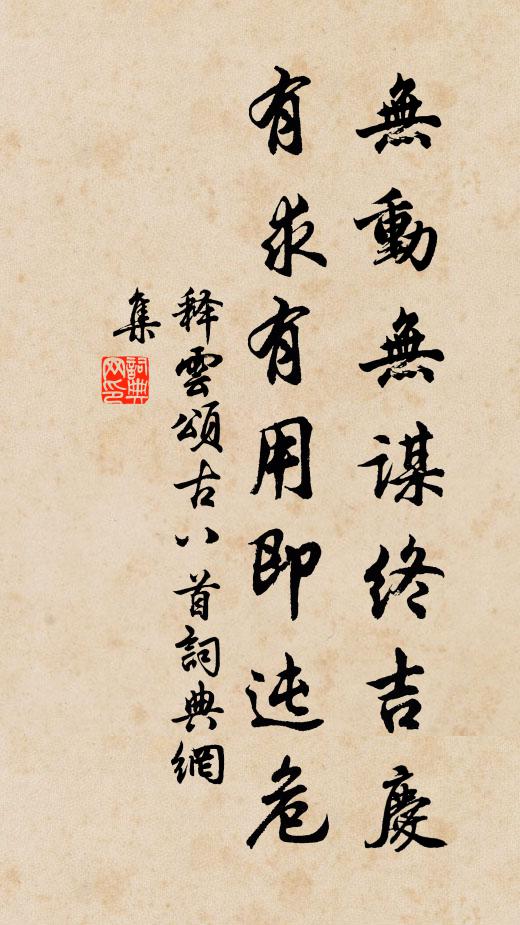 無動無謀終吉慶
有求有用即迍危
释雲頌古八首詞典網
集
詞典
网印